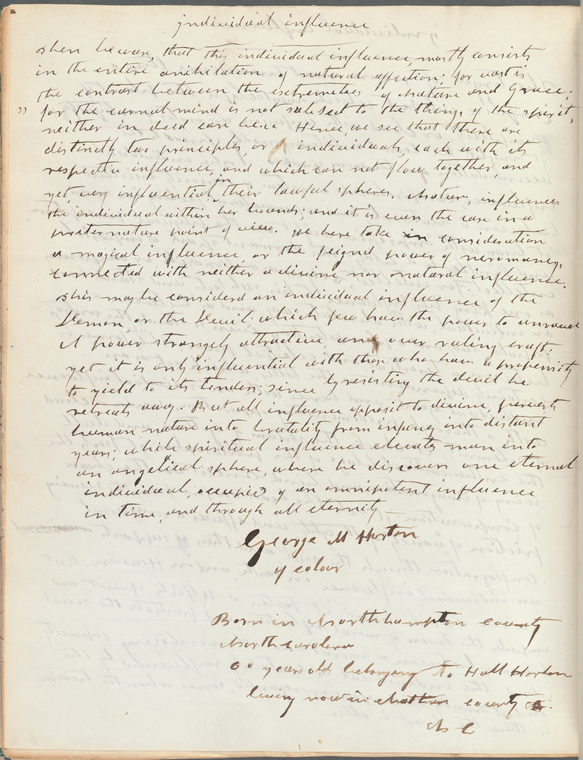 individual influence
then beware, that this individual influence mostly consists
in the entire anihilation of natural affection; for vast is
the contrast between the extremeties of Nature and Grace;
" for the carnal mind is not subject to the things of the spirit,
neither in deed can be" Hence, we see that there are
distinctly two principles or individuals, each with its
respective influence, and which can not flow together, and
yet, very influential in their lawful spheres. Nature, influences
the individual within her bounds; and it is even the case in a
preternature point of view. We here take in consideration
a magical influence or the feigned power of necromancy,
connected with neither a divine nor natural influence.
this may be considerd an individual influence of the
Demon or the Devil which few have the power to unravel
A power strangely attractive and over ruling craft.
yet it is only influential with those who have a propensity
to yield to its tenders; since by resisting the devil he
retreats away. But all influence opposit to divine, perverts
human nature into brutality from infancy into distant
years; while spiritual influence elevats man into
an angelical sphere, where he discovers one eternal
individual, occupied of an omnipotent influence
in time, and through all eternity—
George M Horton
of colour
Born in Northhampton county
North carolina
60 years old belonging to Hall Horton
living now in chatham county
N C